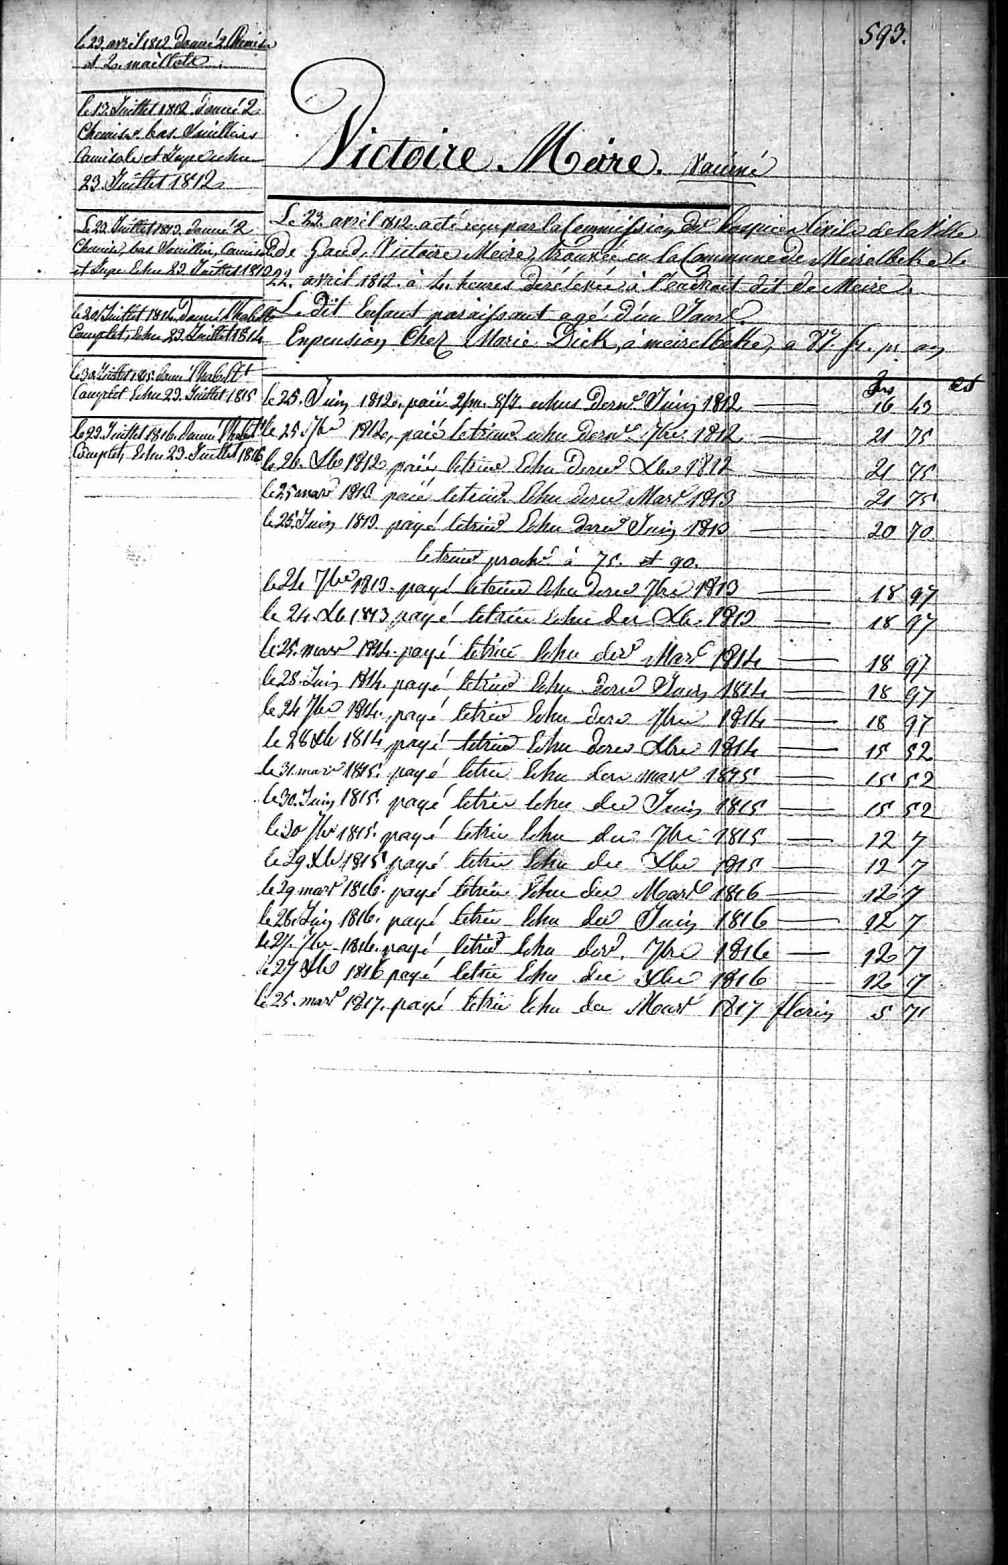 593.
le 23 avril 1812 donné 2 Chemises
et 2 maillots
le 13 Juillet 1812 donné 2
Chemises bas Souilliers
Camisole et Jupe echu
23 Juillet 1812
Le 23 Juillet 1813 donné 2
Chemises, bas Souilliers, Camisole
et Jupe Echu 23 Juillet 1813
le 20 Juillet 1814 donné l'habillt
Complet, Echu 23 Juillet 1814
le 30 Juillet 1815 donné l'habillt
Complet Echu 23 Juillet 1815
le 23 Juillet 1816 donné l'habillt
Complet, Echu 23 Juillet 1816
Victoire Meire. Vaciné
Le 23 avril 1812 a été reçu par la Commission des hospices Civils de la Ville
de Gand, Victoire Meire, trouvée en la Commune de Meirelbeke le
22 avril 1812 à 4 heures de relevée à l'endroit dit de Meire.
Le dit Enfant paraissant agé d'un Jour
En pension Chez Marie Dick, a meirelbeke, a 87 fr. pr an
frs ct
le 25 Juin 1812, paié 2/m. 8/j. echus Dernr Juin 1812 16 43
le 25 7bre 1812, paié le trimre echu dernr 7bre 1812 21 75
le 26 Xbre 1812 paié le trimre Echu dernr Xbre 1812 21 75
le 25 mars 1813 paié le trimre Echu dernr Mars 1813 21 75
le 25 Juin 1813 payé le trimre Echu dernr Juin 1813 20 70
le trimre proch. à 75. et 90.
le 24 7bre 1813 payé le trimre Echu dernr 7bre 1813 18 97
le 24 Xbre 1813 payé le trimre Echu der Xbre 1813 18 97
le 25 mars 1814 payé le trimre Echu derr Mars 1814 18 97
le 28 Juin 1814 payé le trimre Echu dernr Juin 1814 18 97
le 24 7bre 1814 payé le trimre Echu dernr 7bre 1814 18 97
le 28 Xbre 1814 payé le trimre Echu dernr Xbre 1814 15 52
le 31 mars 1815 payé le trimre Echu der mars 1815 15 52
le 30 Juin 1815 payé le trimre Echu der Juin 1815 15 52
le 30 7bre 1815 payé le trimre Echu der 7bre 1815 12 7
le 29 Xbre 1815 payé le trimre Echu der Xbre 1815 12 7
le 29 mars 1816 payé le trimre Echu der Mars 1816 12 7
le 28 Juin 1816 payé le trimre Echu der Juin 1816 12 7
le 27 7bre 1816 payé, le trimre Echu derr 7bre 1816 12 7
le 27 Xbre 1816 payé, le trimre Echu der Xbre 1816 12 7
le 25 mars 1817, payé le trimre Echu der Mars 1817 florins 5 71